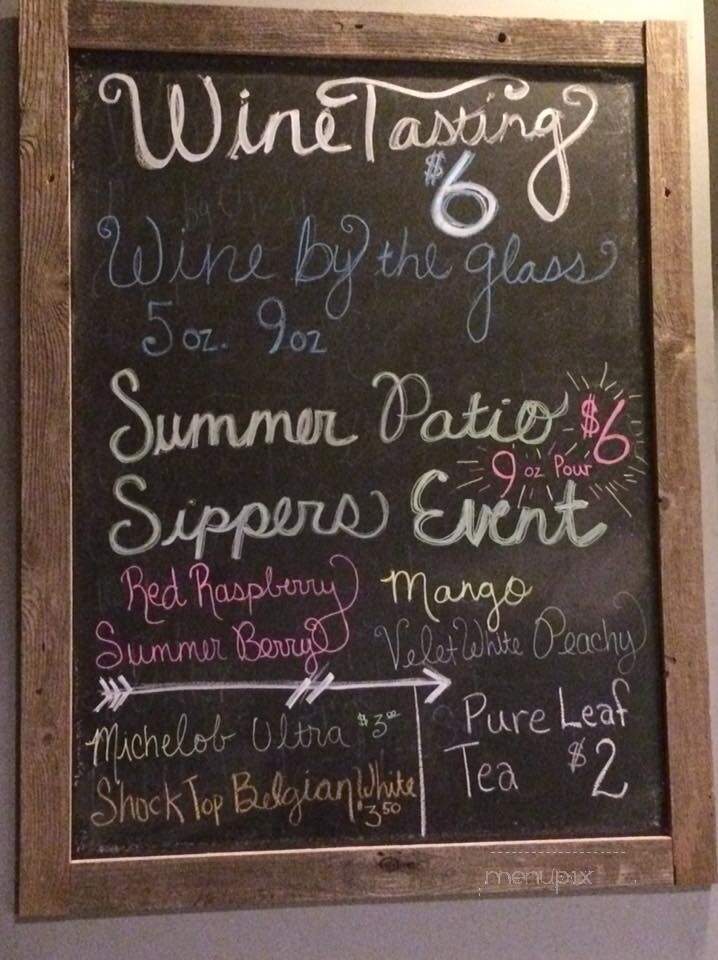 Wine Tasting
$6
Wine by the glass
5 oz. 9oz
Summer Patio $6
9 oz Pour
Sippers Event
Red Raspberry Mango
Summer Berry Velet White Peachy
Michelob Ultra $3.00
Shock Top Belgian White
$3.50
Pure Leaf
Tea $2
menupix